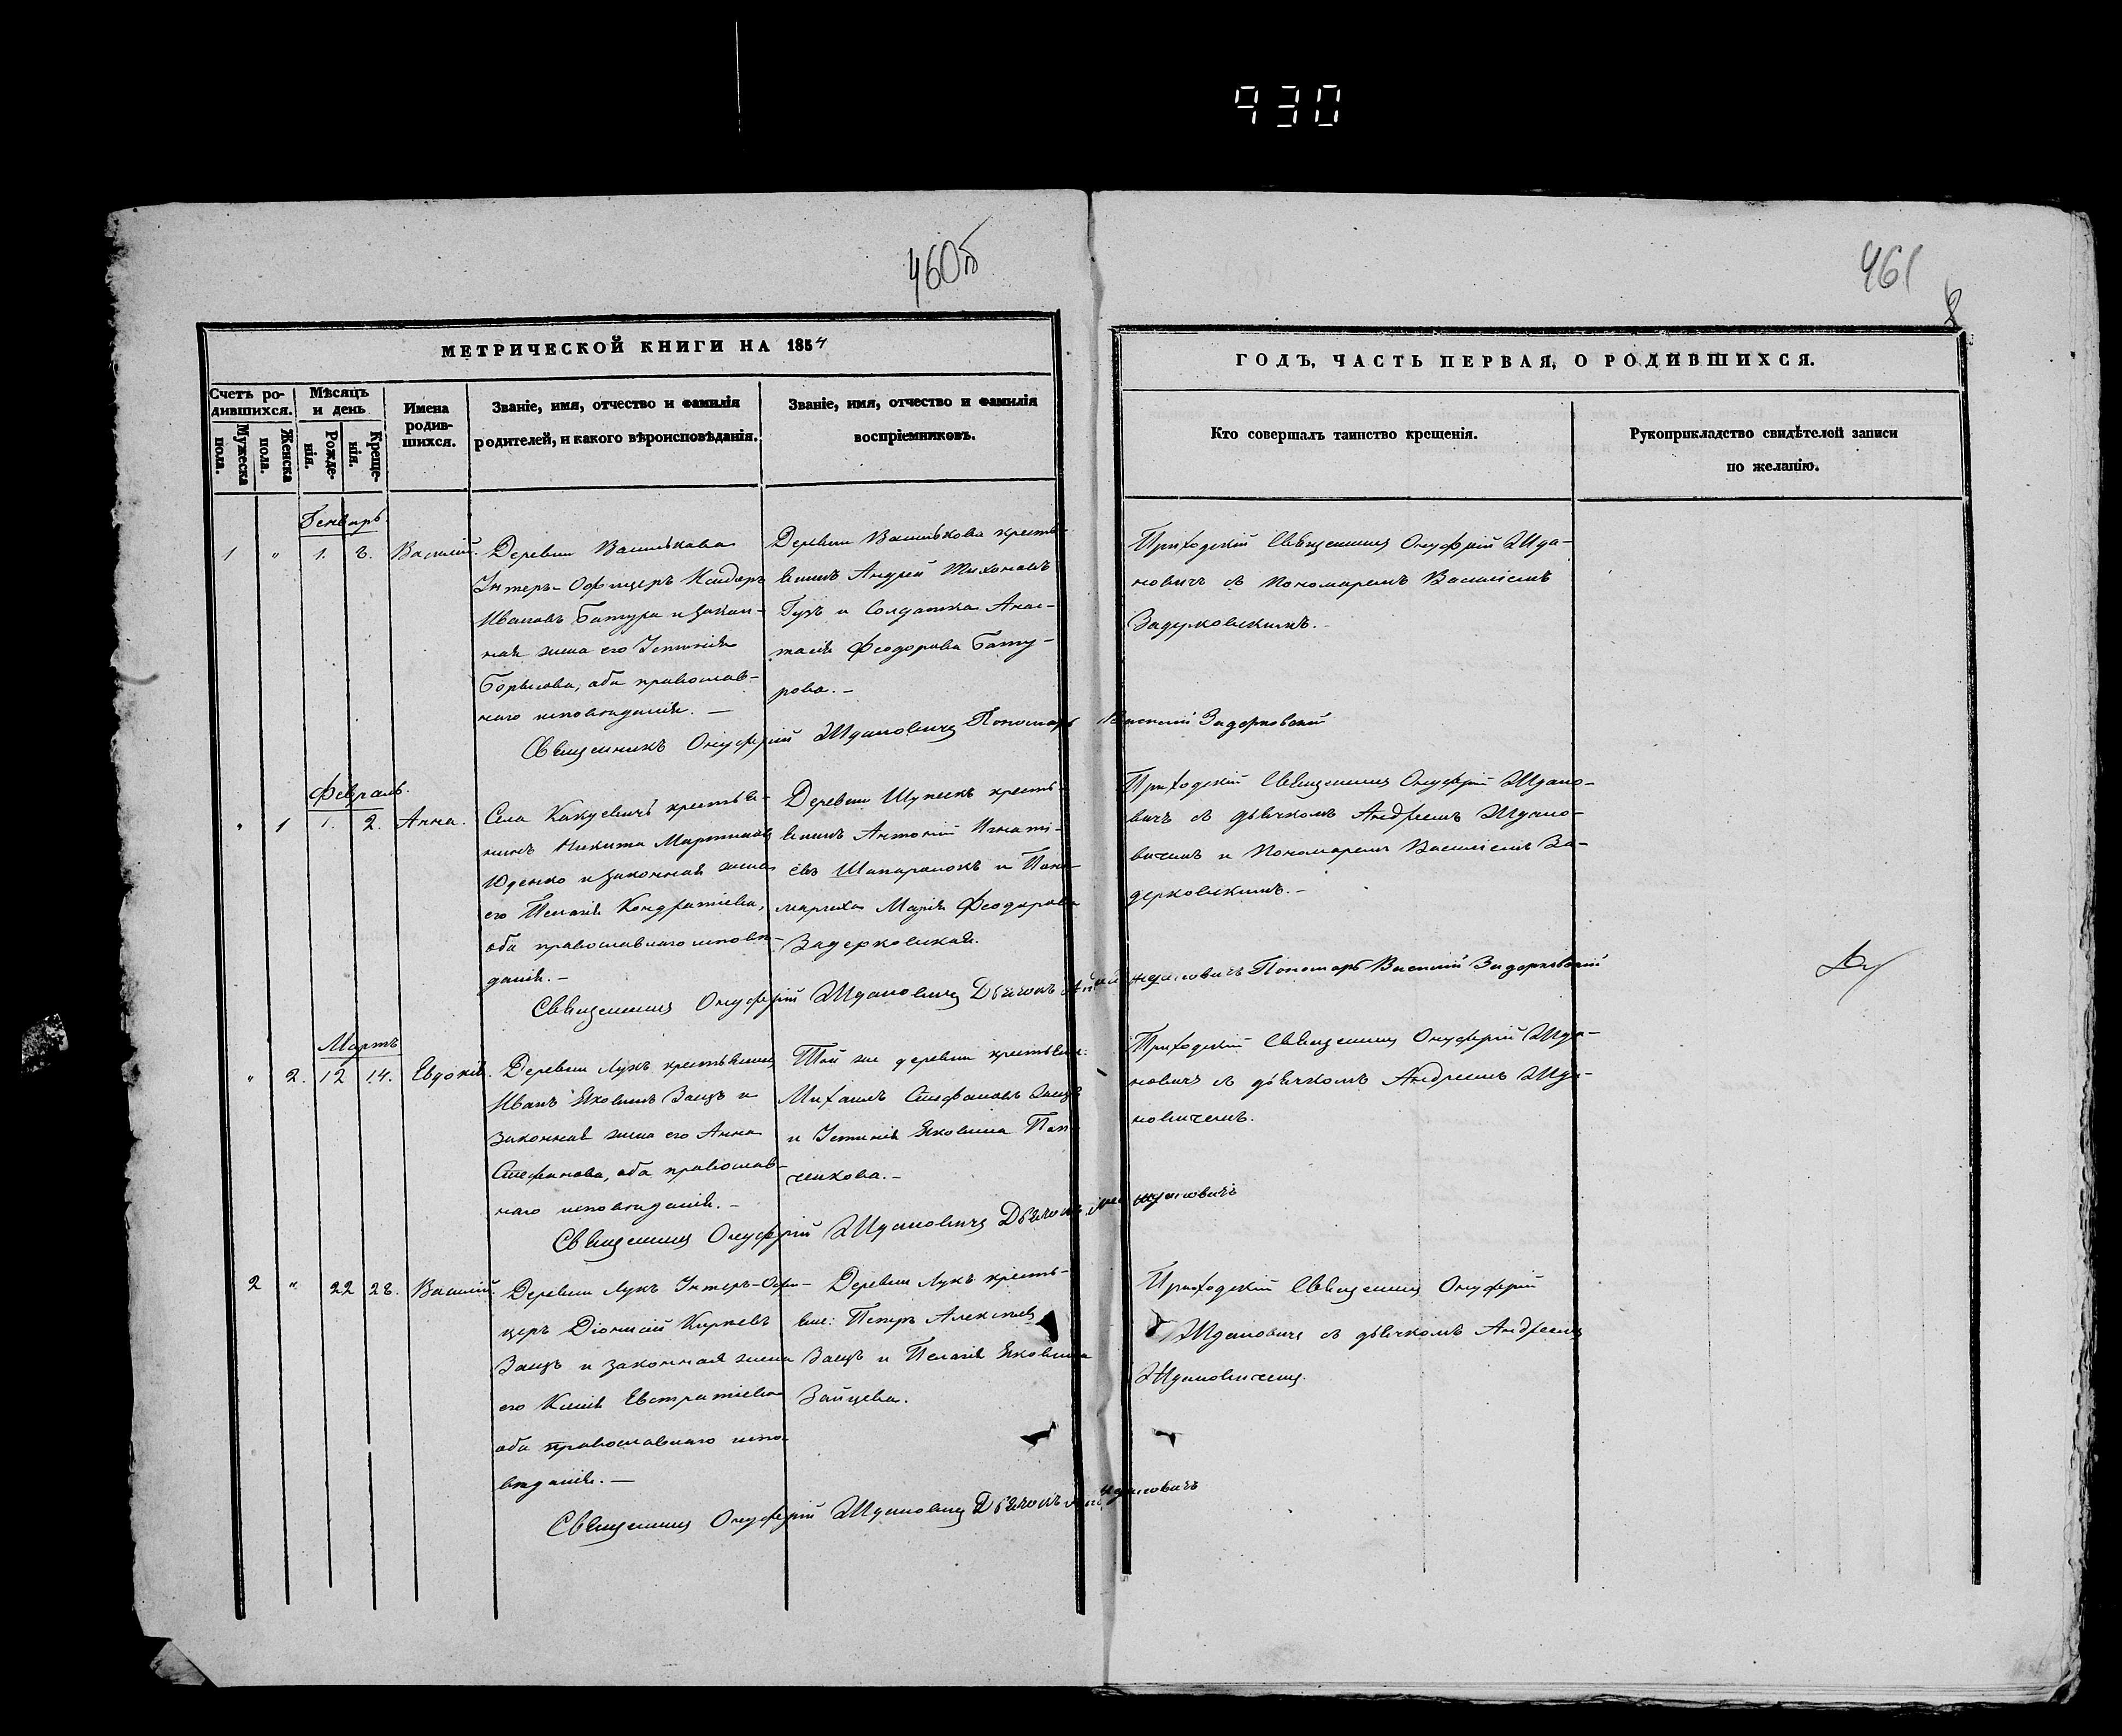 930
460б
461
2
МЕТРИЧЕСКОЙ КНИГИ НА 1854
ГОДЪ, ЧАСТЬ ПЕРВАЯ, О РОДИВШИХСЯ.
Счетъ ро-
дившихся.
Мужеска
пола.
Женска
пола.
Мѣсяцъ
и день
Рожде-
нія.
Креще-
нія.
Имена
родив-
шихся.
Званіе, имя, отчество и фамилія
родителей, и какого вѣроисповѣданія.
Званіе, имя, отчество и фамилія
воспріемниковъ.
Кто совершалъ таинство крещенія.
Рукоприкладство свидѣтелей записи
по желанію.
Генварь.
1 " 1. Василій.
Деревни Василькова
Унтеръ-Офицеръ
Ивановъ Батура и закон-
ная жена его Іустинія
Борисова, оба православ-
наго исповѣданія. —
Деревни Василькова кресть-
янинъ Андрей Тихоновъ
Гузъ и Солдатка Анас-
тасія Феодорова Бату-
рова. —
Приходскій Священникъ Онуфрій Жда-
новичъ съ Пономаремъ Василіемъ
Задерковскимъ. —
Священникъ Онуфрій Ждановичъ Пономарь Василий Задерковский
Февраль.
" 1 1. 2. Анна.
Села крестья-
нинъ Никита Мартиновъ
Юденко и законная жена
его Пелагія Кондратіева,
оба православнаго исповѣ-
данія. —
Деревни кресть-
янинъ Антоній Игнаті-
евъ и Поно-
мариха Марія Феодорова
Задерковская.
Приходскій Священникъ Онуфрій Ждано-
вичъ съ дьячкомъ Андреемъ Ждано-
вичемъ и Пономаремъ Василіемъ За-
дерковскимъ. —
Священникъ Онуфрій Ждановичъ Дьячокъ Андрей Ждановичъ Пономарь Василий Задерковский
Мартъ
" 2. 12 14. Евдокія.
Деревни Лукъ крестьянинъ
Иванъ Яковлевъ Заяцъ и
законная жена его Анна
Стефанова, оба православ-
наго исповѣданія. —
Той же деревни крестьян:
Михаилъ Стефановъ Заяцъ
и Іустинія Яковлева Пан-
ченкова. —
Приходскій Священникъ Онуфрій Жда-
новичъ съ дьячкомъ Андреемъ Жда-
новичемъ.
Священникъ Онуфрій Ждановичъ Дьячокъ Андрей Ждановичъ
2 " 22 28. Василій.
Деревни Лукъ Унтеръ-Офи-
церъ Діонисій Карпевъ
Заяцъ и законная жена
его Ксенія Евстратіева
оба православнаго испо-
вѣданія. —
Деревни Лукъ кресть-
яне: Петръ Алексѣевъ
Заяцъ и Пелагія Яковлева
Зайцева.
Приходскій Священникъ Онуфрій
Ждановичъ съ дьячкомъ Андреемъ
Ждановичемъ.
Священникъ Онуфрій Ждановичъ Дьячокъ Андрей Ждановичъ